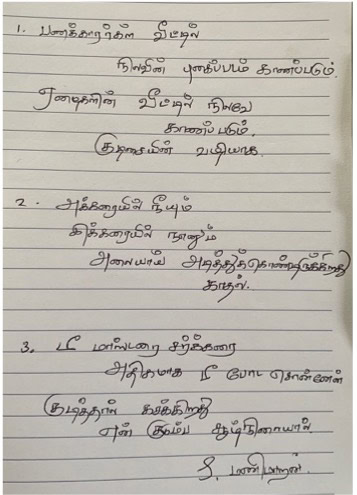 1. பணக்காரர்கள் வீட்டில்
நிலவின் புகைப்படம் காணப்படும்.
ஏழைகளின் வீட்டில் நிலவே
காணப்படும்.
குடிசையின் வழியாக.
2. அக்கரையில் நீயும்
இக்கரையில் நானும்
அலையாய் அடித்துக்கொண்டிருக்கிறது
காதல்.
3. டீ மாஸ்டரை சர்க்கரை
அதிகமாக டீ போட சொன்னேன்
குடித்தால் கசக்கிறது
என் குடும்ப சூழ்நிலையால்.
மணிமாறன்.